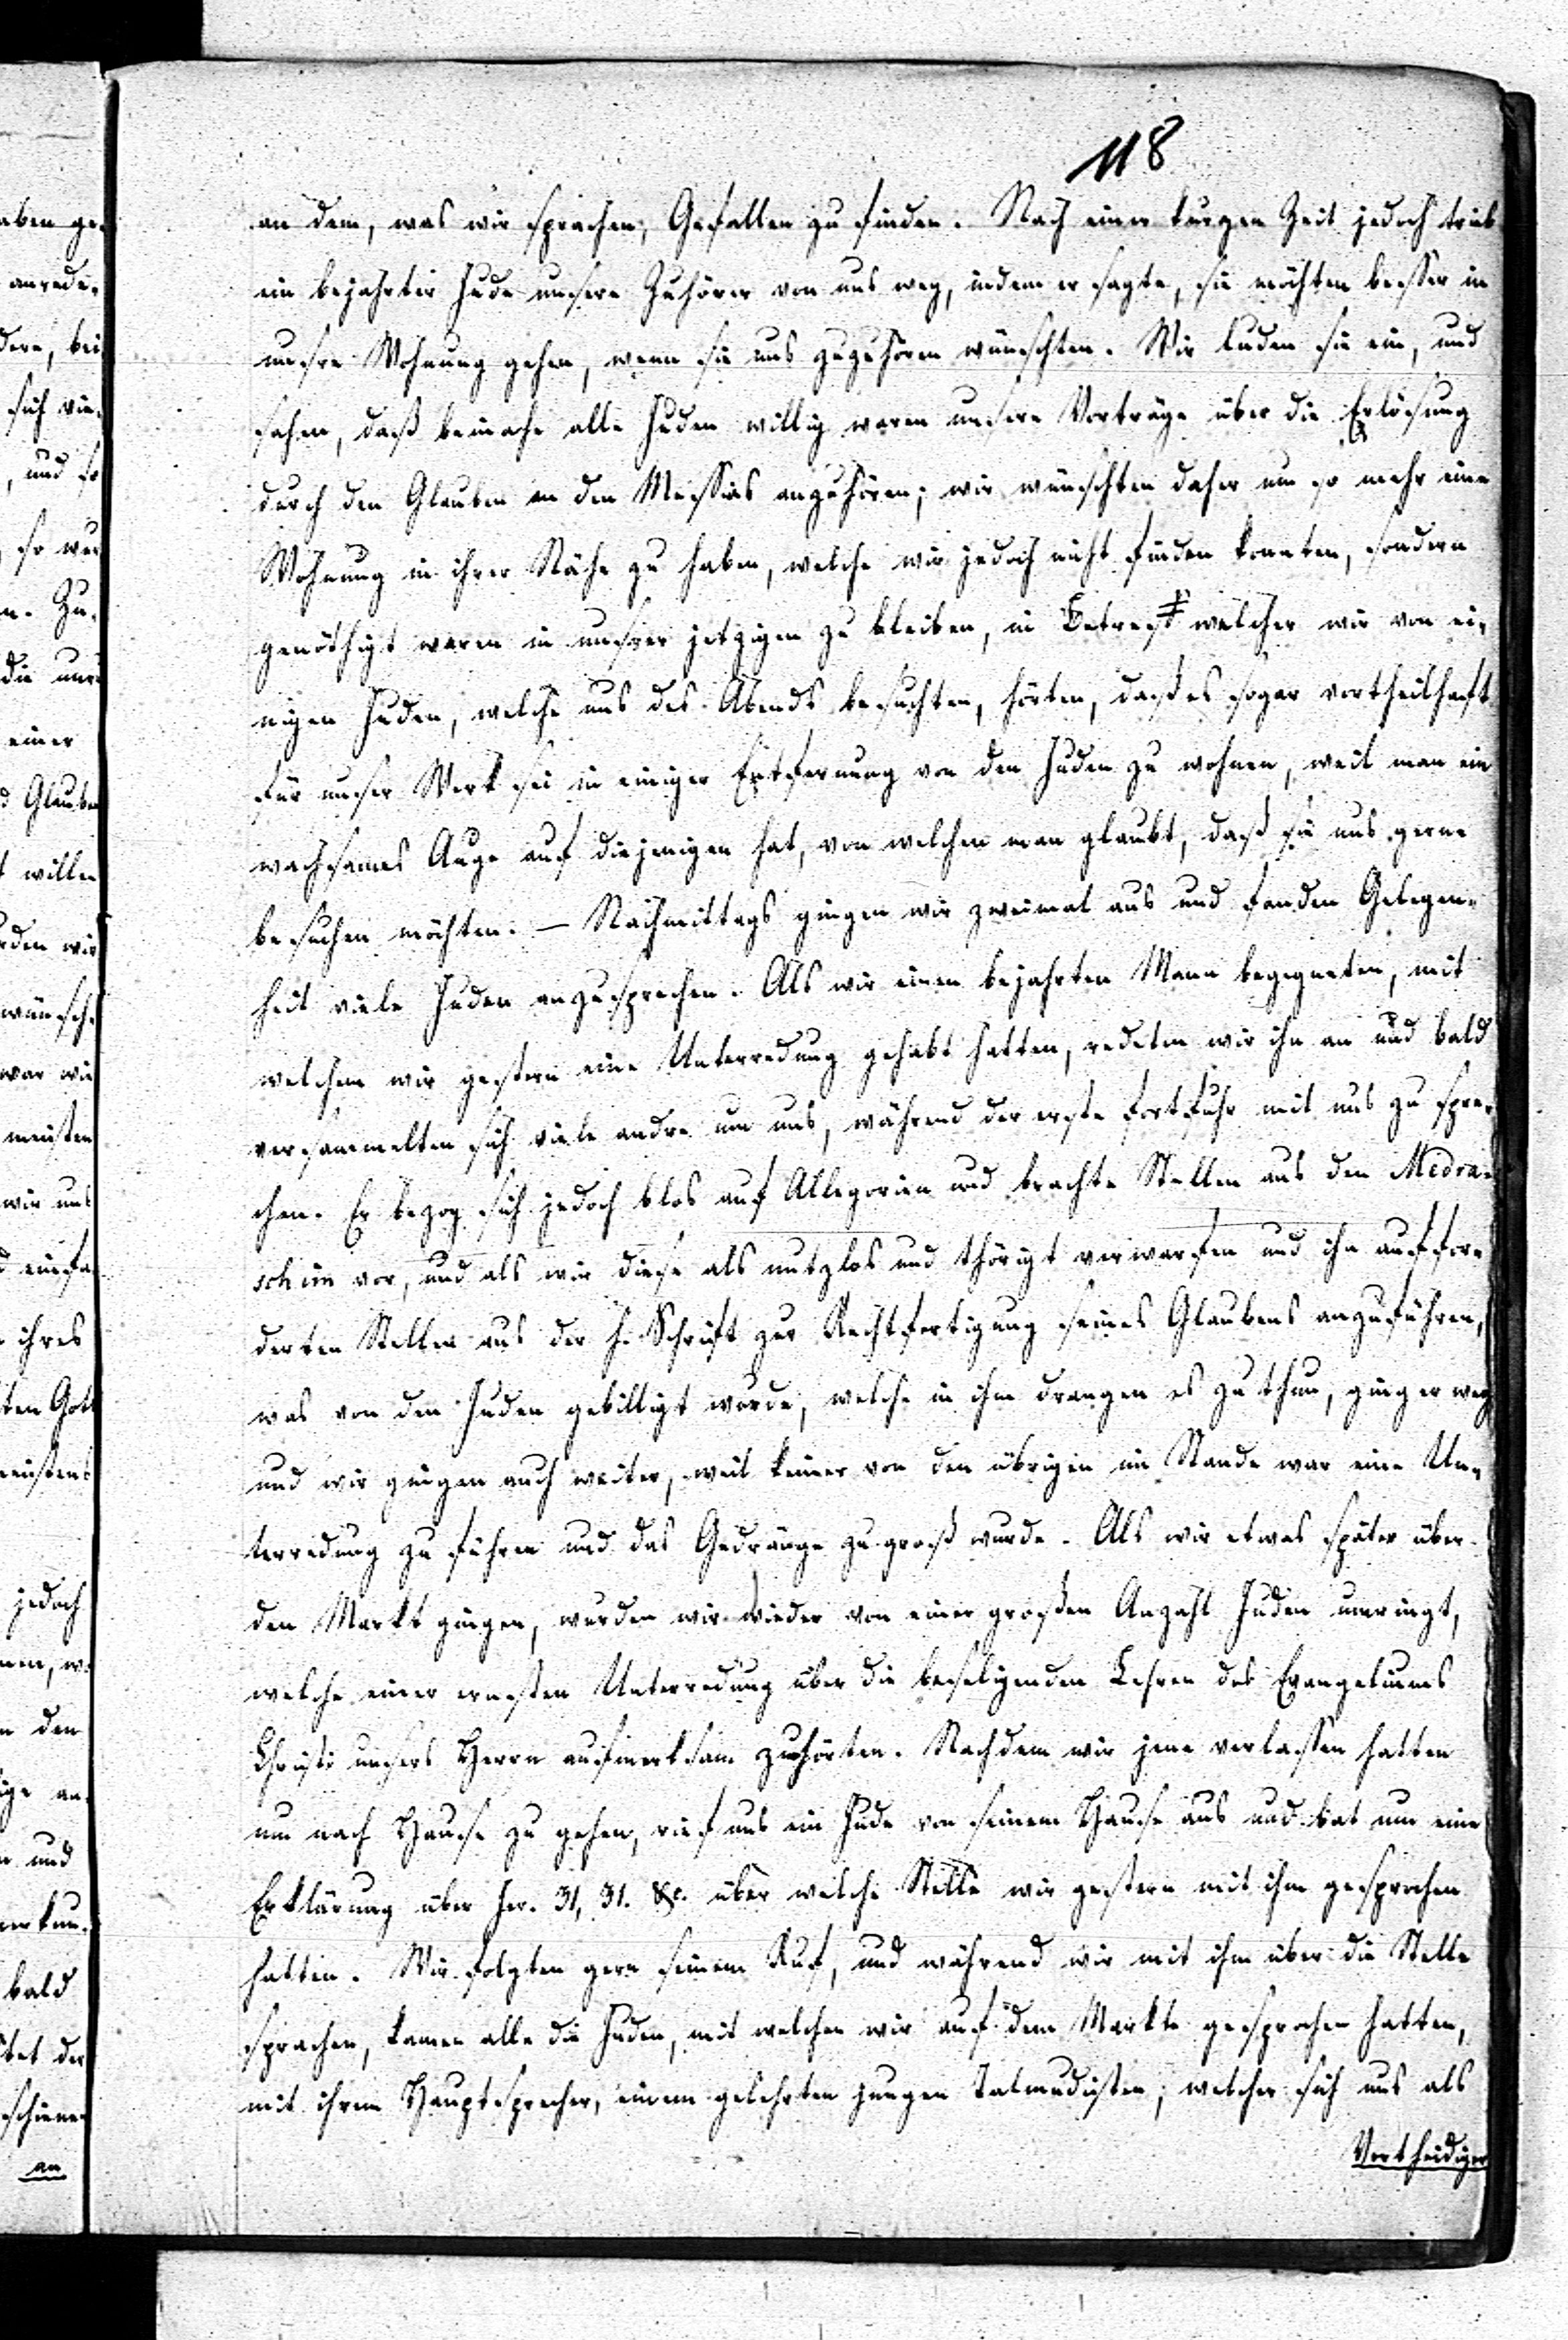 118
an dem, was wir sprachen, Gefallen zu finden. Nach einer kurzen Zeit jedoch trieb
ein bejahrter Jude unsere Zuhörer von uns weg, indem er sagte, sie möchten besser in
unsere Wohnung gehen, wenn sie uns zuzuhören wünschten. Wir luden sie ein, und
sahen, daß beinahe alle Juden willig waren unsere Vorträge über die Erlösung
durch den Glauben an den Messias anzuhören; wir wünschten daher um so mehr eine
Wohnung in ihrer Nähe zu haben, welche wir jedoch nicht finden konnten, sondern
genöthigt waren in unserer jetzigen zu bleiben, in Betreff welcher wir von ei-
nigen Juden, welche uns des Abends besuchten, hörten, daß es sogar vortheilhaft
für unser Werk sei in einiger Entfernung von den Juden zu wohnen, weil man ein
wachsames Auge auf diejenigen hat, von welchen man glaubt, daß sie uns gerne
besuchen möchten. — Nachmittags gingen wir zweimal aus und fanden Gelegen-
heit viele Juden anzusprechen. Als wir einen bejahrten Mann begegneten, mit
welchem wir gestern eine Unterredung gehabt hatten, redeten wir ihn an und bald
versammelten sich viele andre um uns, während der erste fortfuhr mit uns zu spre-
chen. Er bezog sich jedoch blos auf Allegorien und brachte Stellen aus den Medra-
schim vor, und als wir diese als nutzlos und thörigt verwarfen und ihn auffor-
derten Stellen aus der h. Schrift zur Rechtfertigung seines Glaubens anzuführen,
was von den Juden gebilligt wurde, welche in ihn drangen es zu thun, ging er weg,
und wir gingen auch weiter, weil keiner von den übrigen im Stande war eine Un-
terredung zu führen und das Gedränge zu groß wurde. Als wir etwas später über
den Markt gingen, wurden wir wieder von einer großen Anzahl Juden umringt,
welche einer ernsten Unterredung über die beseligenden Lehren des Evangeliums
Christi unsers Herrn aufmerksam zuhörten. Nachdem wir jene verlassen hatten
um nach Hause zu gehen, rief uns ein Jude von seinem Hause aus und bat um eine
Erklärung über Jer. 31, 31. &c. über welche Stelle wir gestern mit ihm gesprochen
hatten. Wir folgten gern seinem Ruf, und während wir mit ihm über die Stelle
sprachen, kamen alle die Juden, mit welchen wir auf dem Markte gesprochen hatten,
mit ihrem Hauptsprecher, einem gelehrten jungen Talmudisten, welcher sich uns als
Vertheidiger